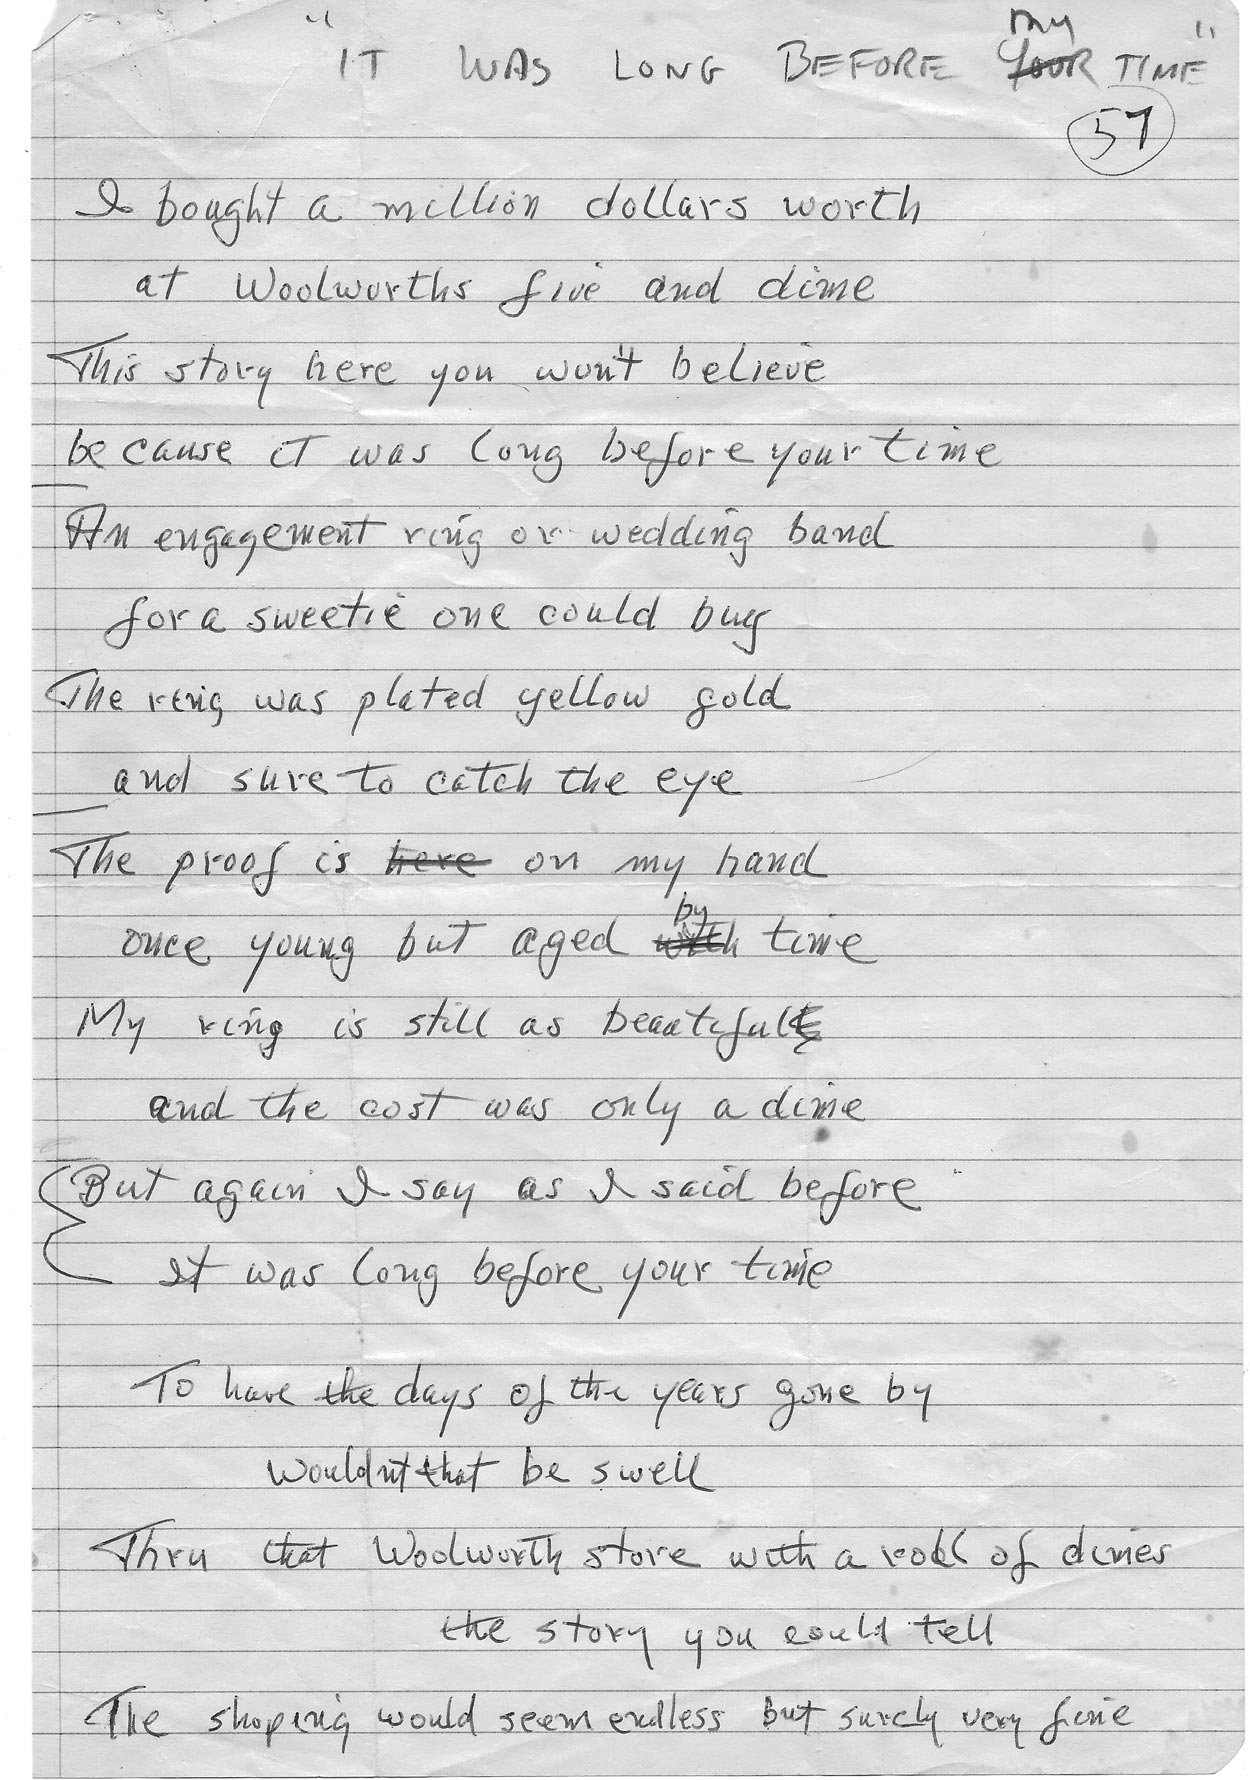 "IT WAS LONG BEFORE my TIME"
57
I bought a million dollars worth
at Woolworths five and dime
This story here you won't believe
because it was long before your time
An engagement ring or wedding band
for a sweetie one could buy
The ring was plated yellow gold
and sure to catch the eye
The proof is here on my hand
once young but aged by time
My ring is still as beautiful
and the cost was only a dime
But again I say as I said before
It was long before your time
To have the days of the years gone by
wouldn't that be swell
Thru that Woolworth store with a roll of dimes
the story you could tell
The shoping would seem endless but surely very fine